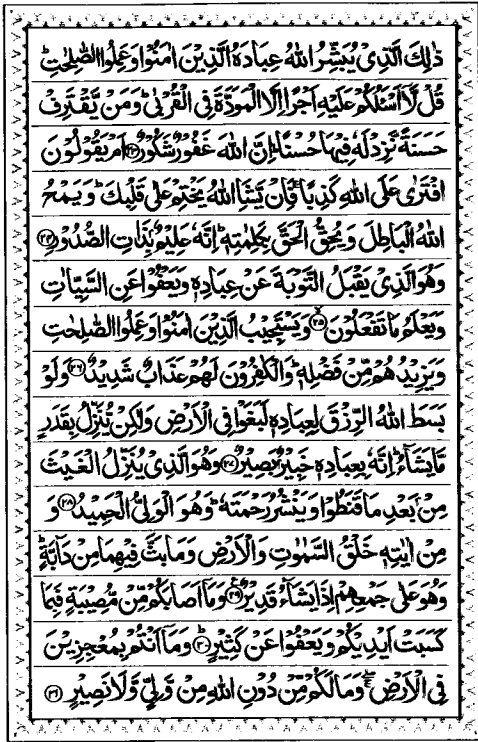 ذٰلِكَ الَّذِىْ يُبَشِّرُ اللهُ عِبَادَهُ الَّذِيْنَ اٰمَنُوْا وَعَمِلُوا الصّٰلِحٰتِ ؕ
قُلْ لَّاۤ اَسْئَلُكُمْ عَلَيْهِ اَجْرًا اِلَّا الْمَوَدَّةَ فِى الْقُرْبٰى ؕ وَمَنْ يَّقْتَرِفْ
حَسَنَةً نَّزِدْ لَهٗ فِيْهَا حُسْنًا ؕ اِنَّ اللهَ غَفُوْرٌ شَكُوْرٌ ﴿۲۳﴾ اَمْ يَقُوْلُوْنَ
افْتَرٰى عَلَى اللهِ كَذِبًا ۚ فَاِنْ يَّشَاِ اللهُ يَخْتِمْ عَلٰى قَلْبِكَ ؕ وَيَمْحُ
اللهُ الْبَاطِلَ وَيُحِقُّ الْحَقَّ بِكَلِمٰتِهٖ ؕ اِنَّهٗ عَلِيْمٌۢ بِذَاتِ الصُّدُوْرِ ﴿۲۴﴾
وَهُوَ الَّذِىْ يَقْبَلُ التَّوْبَةَ عَنْ عِبَادِهٖ وَيَعْفُوْا عَنِ السَّيِّاٰتِ
وَيَعْلَمُ مَا تَفْعَلُوْنَ ﴿۲۵﴾ وَيَسْتَجِيْبُ الَّذِيْنَ اٰمَنُوْا وَعَمِلُوا الصّٰلِحٰتِ
وَيَزِيْدُهُمْ مِّنْ فَضْلِهٖ ؕ وَالْكٰفِرُوْنَ لَهُمْ عَذَابٌ شَدِيْدٌ ﴿۲۶﴾ وَلَوْ
بَسَطَ اللهُ الرِّزْقَ لِعِبَادِهٖ لَبَغَوْا فِى الْاَرْضِ وَلٰكِنْ يُّنَزِّلُ بِقَدَرٍ
مَّا يَشَآءُ ؕ اِنَّهٗ بِعِبَادِهٖ خَبِيْرٌۢ بَصِيْرٌ ﴿۲۷﴾ وَهُوَ الَّذِىْ يُنَزِّلُ الْغَيْثَ
مِنْۢ بَعْدِ مَا قَنَطُوْا وَيَنْشُرُ رَحْمَتَهٗ ؕ وَهُوَ الْوَلِىُّ الْحَمِيْدُ ﴿۲۸﴾ وَ
مِنْ اٰيٰتِهٖ خَلْقُ السَّمٰوٰتِ وَالْاَرْضِ وَمَا بَثَّ فِيْهِمَا مِنْ دَآبَّةٍ ؕ
وَهُوَ عَلٰى جَمْعِهِمْ اِذَا يَشَآءُ قَدِيْرٌ ﴿۲۹﴾ وَمَاۤ اَصَابَكُمْ مِّنْ مُّصِيْبَةٍ فَبِمَا
كَسَبَتْ اَيْدِيْكُمْ وَيَعْفُوْا عَنْ كَثِيْرٍ ﴿۳۰﴾ وَمَاۤ اَنْتُمْ بِمُعْجِزِيْنَ
فِى الْاَرْضِ ۚۖ وَمَا لَكُمْ مِّنْ دُوْنِ اللهِ مِنْ وَّلِىٍّ وَّلَا نَصِيْرٍ ﴿۳۱﴾